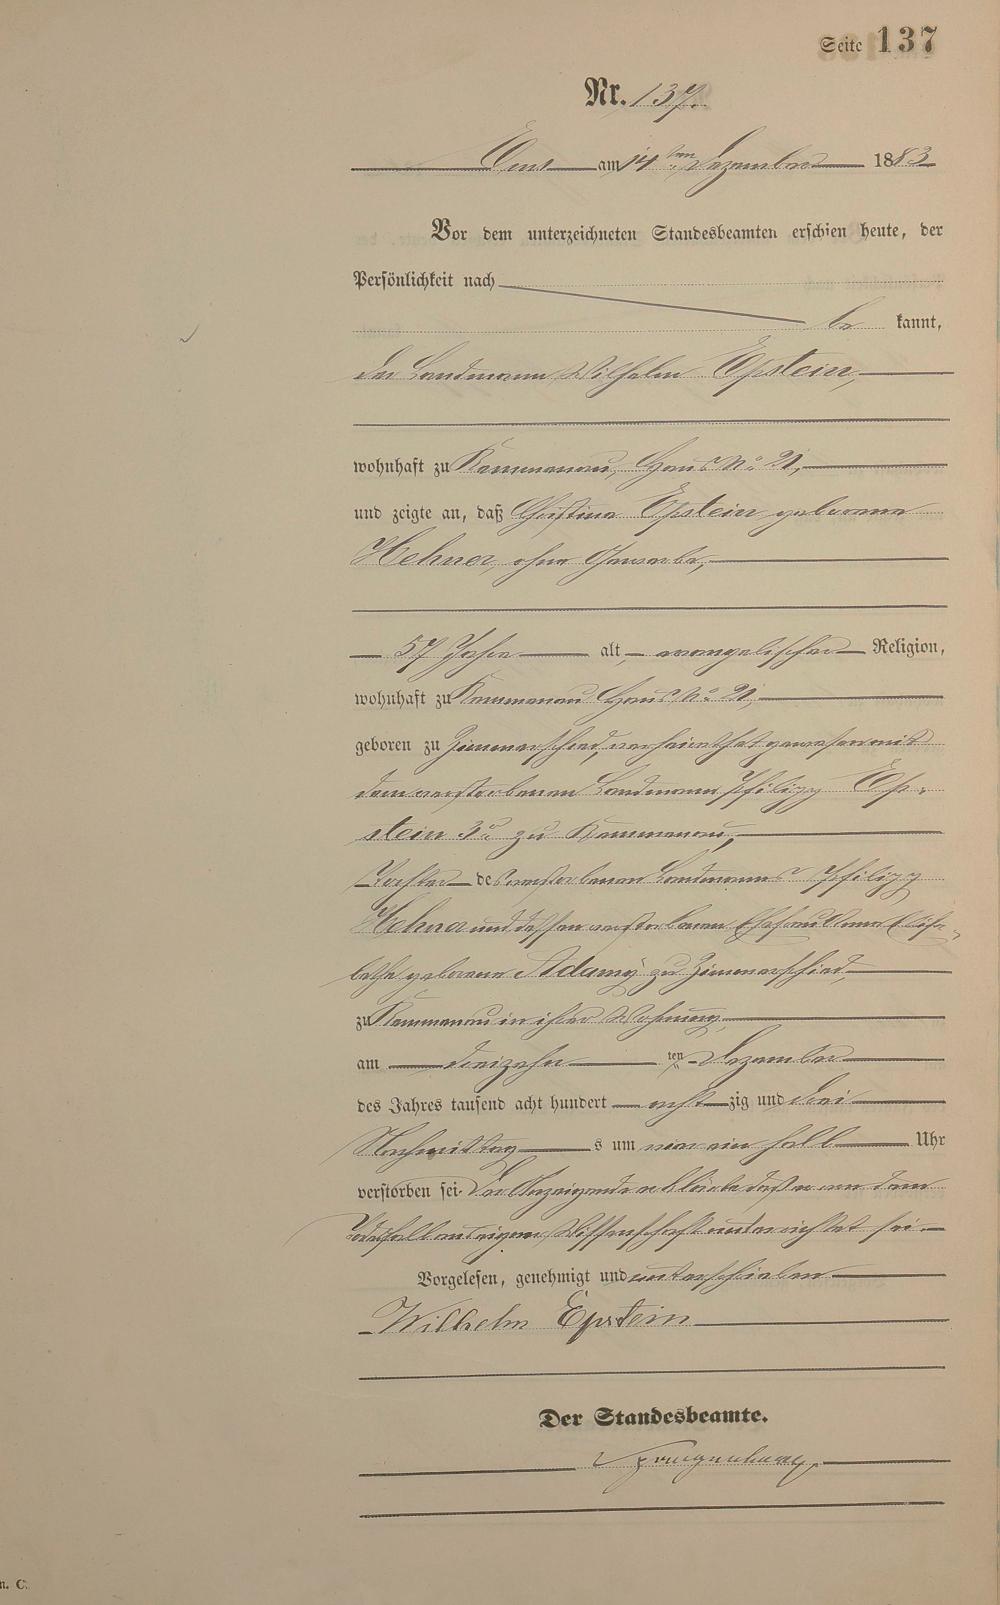 Seite 137
Nr. 137.
Ems am 14ten Dezember 1883
Vor dem unterzeichneten Standesbeamten erschien heute, der
Persönlichkeit nach
be kannt,
der Landmann Wilhelm Epstein,
wohnhaft zu Kemmenau, Haus No 21,
und zeigte an, daß Christine Epstein geborene
Hehner, ohne Gewerbe,
57 Jahre alt, evangelischer Religion,
wohnhaft zu Kemmenau Haus No 21,
geboren zu Zimmerschied, verheirathet gewesen mit
dem verstorbenen Landmann Philipp Ep-
stein 3r zu Kemmenau,
Tochter des verstorbenen Landmanns Philipp
Hehner und dessen verstorbenen Ehefrau Anna Elisa-
bethe geborene Adamy zu Zimmerschied,
zu Kemmenau in ihrer Wohnung,
am dreizehn ten Dezember
des Jahres tausend acht hundert acht zig und drei
Nachmittag s um ein halb Uhr
verstorben sei. Der Anzeigende erklärte daß er von dem
Todesfall aus eigener Wissenschaft unterrichtet sei.
Vorgelesen, genehmigt und unterschrieben
Wilhelm Epstein
Der Standesbeamte.
n. C.